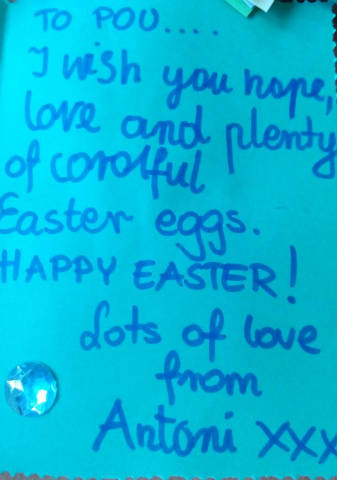 TO POU....
I wish you hope,
love and plenty
of corolful
Easter eggs.
HAPPY EASTER!
Lots of love
from
Antoni xxx